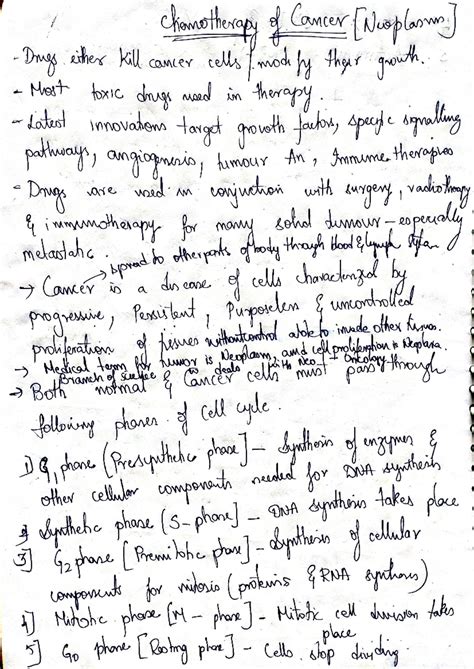 Chemotherapy of Cancer [Neoplasms]
- Drugs either kill cancer cells / modify their growth.
- Most toxic drugs used in therapy.
- Latest innovations target growth factors, specific signalling
pathways, angiogenesis, tumour An, Immune therapies
- Drugs are used in conjuction with surgery, radiotherapy
& immunotherapy for many solid tumour – especially
metastatic.
→ spread to other parts of body through blood & lymph
→ Cancer is a disease of cells characterized by
progressive, Persistent, Purposeless & uncontrolled
proliferation of tissues without control able to invade other tissues.
→ Medical term for tumor is Neoplasm, and cell proliferation is Neoplasia.
Branch of science deals with Neo – Oncology
→ Both normal & Cancer cells must pass through
following phases of cell cycle.
1) G1 phase [Presynthetic phase] – Synthesis of enzymes &
other cellular components needed for DNA synthesis
2) Synthetic phase [S-phase] – DNA synthesis takes place
3] G2 phase [Premitotic phase] – Synthesis of cellular
components for mitosis (proteins & RNA synthesis)
4] Mitotic phase [M – phase] – Mitotic cell division takes
place
5] G0 phase [Resting phase] – Cells stop dividing.